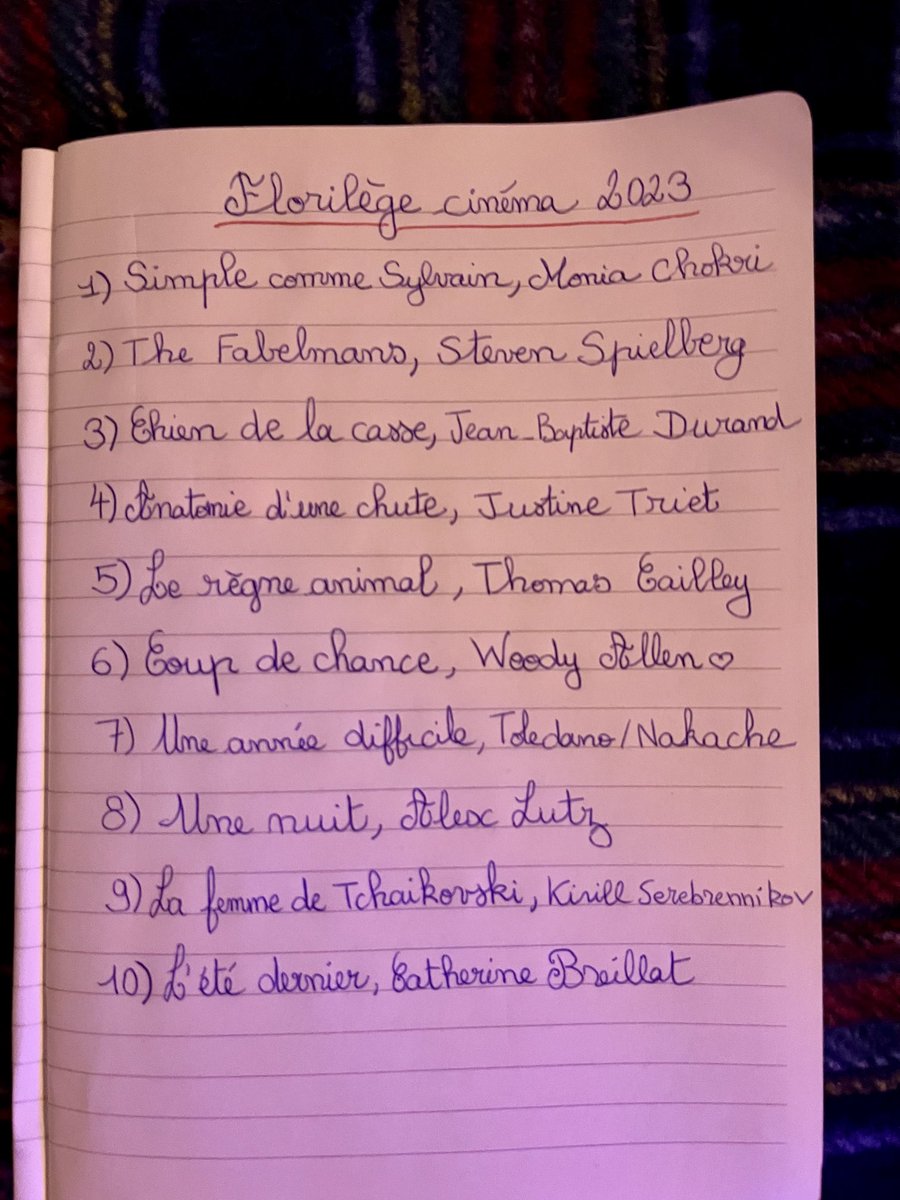 Florilège cinéma 2023
1) Simple comme Sylvain, Monia Chokri
2) The Fabelmans, Steven Spielberg
3) Chien de la casse, Jean-Baptiste Durand
4) Anatomie d'une chute, Justine Triet
5) Le règne animal, Thomas Cailley
6) Coup de chance, Woody Allen ♡
7) Une année difficile, Toledano/Nakache
8) Une nuit, Alex Lutz
9) La femme de Tchaikovski, Kirill Serebrennikov
10) L'été dernier, Catherine Breillat